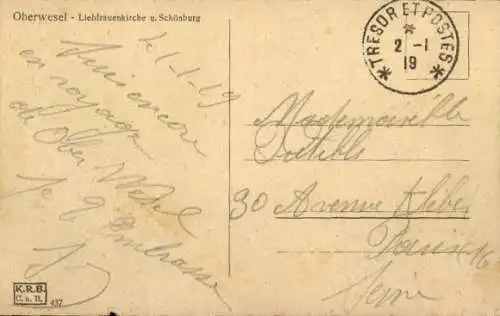 Oberwesel - Liebfrauenkirche u. Schönburg
TRESOR ET POSTES
2 -1
19
1-1-19
Suis encore
en voyage
de Ober Wesel
Je t'embrasse
Mademoiselle
30 Avenue Kléber
Paris 16
Seine
K.R.B.
C. u. H.
437